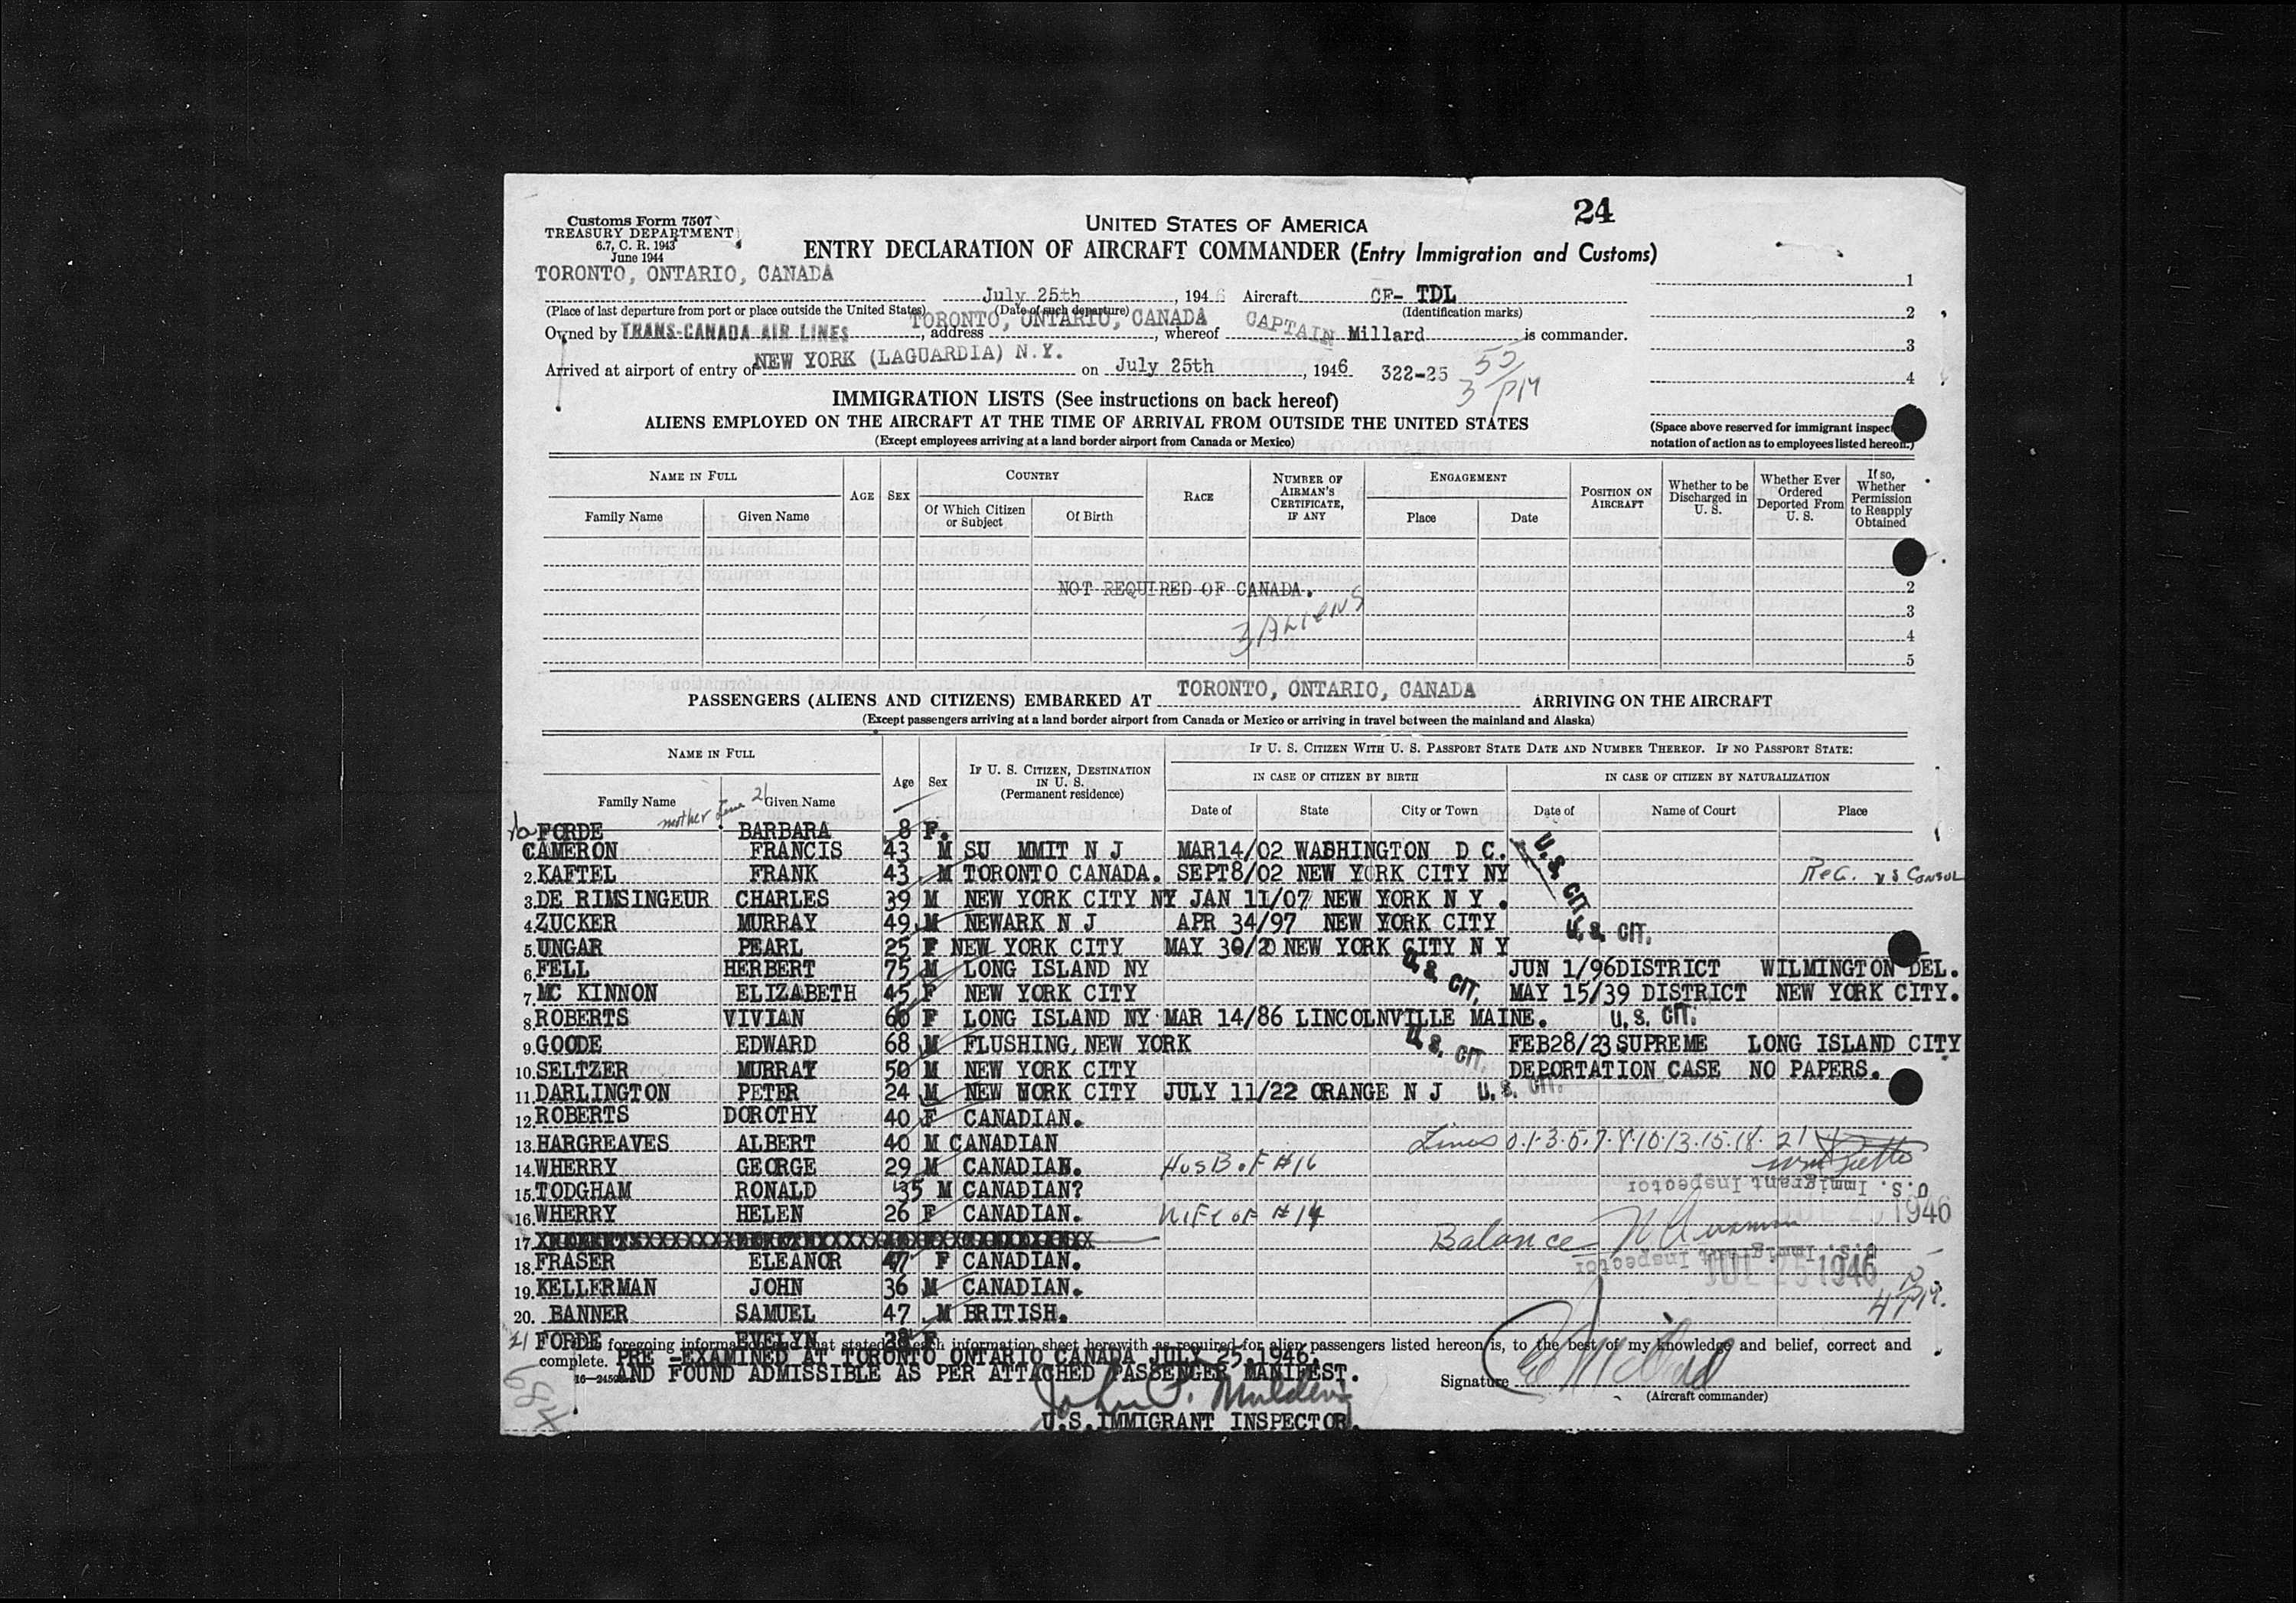 24
Customs Form 7507
TREASURY DEPARTMENT
6.7, C. R. 1943
June 1944
UNITED STATES OF AMERICA
ENTRY DECLARATION OF AIRCRAFT COMMANDER (Entry Immigration and Customs)
TORONTO, ONTARIO, CANADA
July 25th, 1946 Aircraft CF- TDL
(Place of last departure from port or place outside the United States) (Date of such departure) (Identification marks)
Owned by TRANS-CANADA AIR LINES, address TORONTO, ONTARIO, CANADA, whereof CAPTAIN Millard is commander.
Arrived at airport of entry of NEW YORK (LAGUARDIA) N.Y. on July 25th, 1946 322-25
3 55 PM
1
2
3
4
(Space above reserved for immigrant inspec
notation of action as to employees listed hereon.)
IMMIGRATION LISTS (See instructions on back hereof)
ALIENS EMPLOYED ON THE AIRCRAFT AT THE TIME OF ARRIVAL FROM OUTSIDE THE UNITED STATES
(Except employees arriving at a land border airport from Canada or Mexico)
NAME IN FULL
Family Name Given Name
AGE SEX
COUNTRY
Of Which Citizen or Subject
Of Birth
RACE
NUMBER OF AIRMAN'S CERTIFICATE, IF ANY
ENGAGEMENT
Place Date
POSITION ON AIRCRAFT
Whether to be Discharged in U. S.
Whether Ever Ordered Deported From U. S.
If so, Whether Permission to Reapply Obtained
NOT REQUIRED OF CANADA. 2
3 ALIENS 3
4
5
PASSENGERS (ALIENS AND CITIZENS) EMBARKED AT TORONTO, ONTARIO, CANADA ARRIVING ON THE AIRCRAFT
(Except passengers arriving at a land border airport from Canada or Mexico or arriving in travel between the mainland and Alaska)
NAME IN FULL
Family Name Given Name
Age Sex
IF U. S. CITIZEN, DESTINATION IN U. S.
(Permanent residence)
IF U. S. CITIZEN WITH U. S. PASSPORT STATE DATE AND NUMBER THEREOF. IF NO PASSPORT STATE:
IN CASE OF CITIZEN BY BIRTH
Date of State City or Town
IN CASE OF CITIZEN BY NATURALIZATION
Date of Name of Court Place
mother Line 21
FORDE BARBARA 8 F.
CAMERON FRANCIS 43 M SU MMIT N J MAR14/02 WASHINGTON D C. U.S. CIT.
2. KAFTEL FRANK 43 M TORONTO CANADA. SEPT8/02 NEW YORK CITY NY REG. US CONSUL
3. DE RIMSINGEUR CHARLES 39 M NEW YORK CITY NY JAN 11/07 NEW YORK N Y .
4. ZUCKER MURRAY 49 M NEWARK N J APR 34/97 NEW YORK CITY U.S. CIT.
5. UNGAR PEARL 25 F NEW YORK CITY MAY 30/20 NEW YORK CITY N Y
6. FELL HERBERT 75 M LONG ISLAND NY U.S. CIT. JUN 1/96 DISTRICT WILMINGTON DEL.
7. MC KINNON ELIZABETH 45 F NEW YORK CITY MAY 15/39 DISTRICT NEW YORK CITY.
8. ROBERTS VIVIAN 60 F LONG ISLAND NY MAR 14/86 LINCOLNVILLE MAINE. U.S. CIT.
9. GOODE EDWARD 68 M FLUSHING, NEW YORK U.S. CIT. FEB28/23 SUPREME LONG ISLAND CITY
10. SELTZER MURRAY 50 M NEW YORK CITY DEPORTATION CASE NO PAPERS.
11. DARLINGTON PETER 24 M NEW WORK CITY JULY 11/22 ORANGE N J U.S. CIT.
12. ROBERTS DOROTHY 40 F CANADIAN.
13. HARGREAVES ALBERT 40 M CANADIAN Lines 0.1.3.5.7.8.10.13.15.18. 21
14. WHERRY GEORGE 29 M CANADIAN. HUSB. OF #16
15. TODGHAM RONALD 35 M CANADIAN? U.S. Immigrant Inspector
16. WHERRY HELEN 26 F CANADIAN. WIFE OF #14 JUL 25 1946
17. Balance
18. FRASER ELEANOR 47 F CANADIAN. U.S. Immigrant Inspector JUL 25 1946
19. KELLERMAN JOHN 36 M CANADIAN.
20. BANNER SAMUEL 47 M BRITISH. 4 PM.
21 FORDE EVELYN 38 F
foregoing information that stated each information sheet herewith as required for alien passengers listed hereon is, to the best of my knowledge and belief, correct and
complete. PRE -EXAMINED AT TORONTO ONTARIO CANADA JULY 25, 1946.
16—2450 AND FOUND ADMISSIBLE AS PER ATTACHED PASSENGER MANIFEST.
Signature
(Aircraft commander)
U.S. IMMIGRANT INSPECTOR.